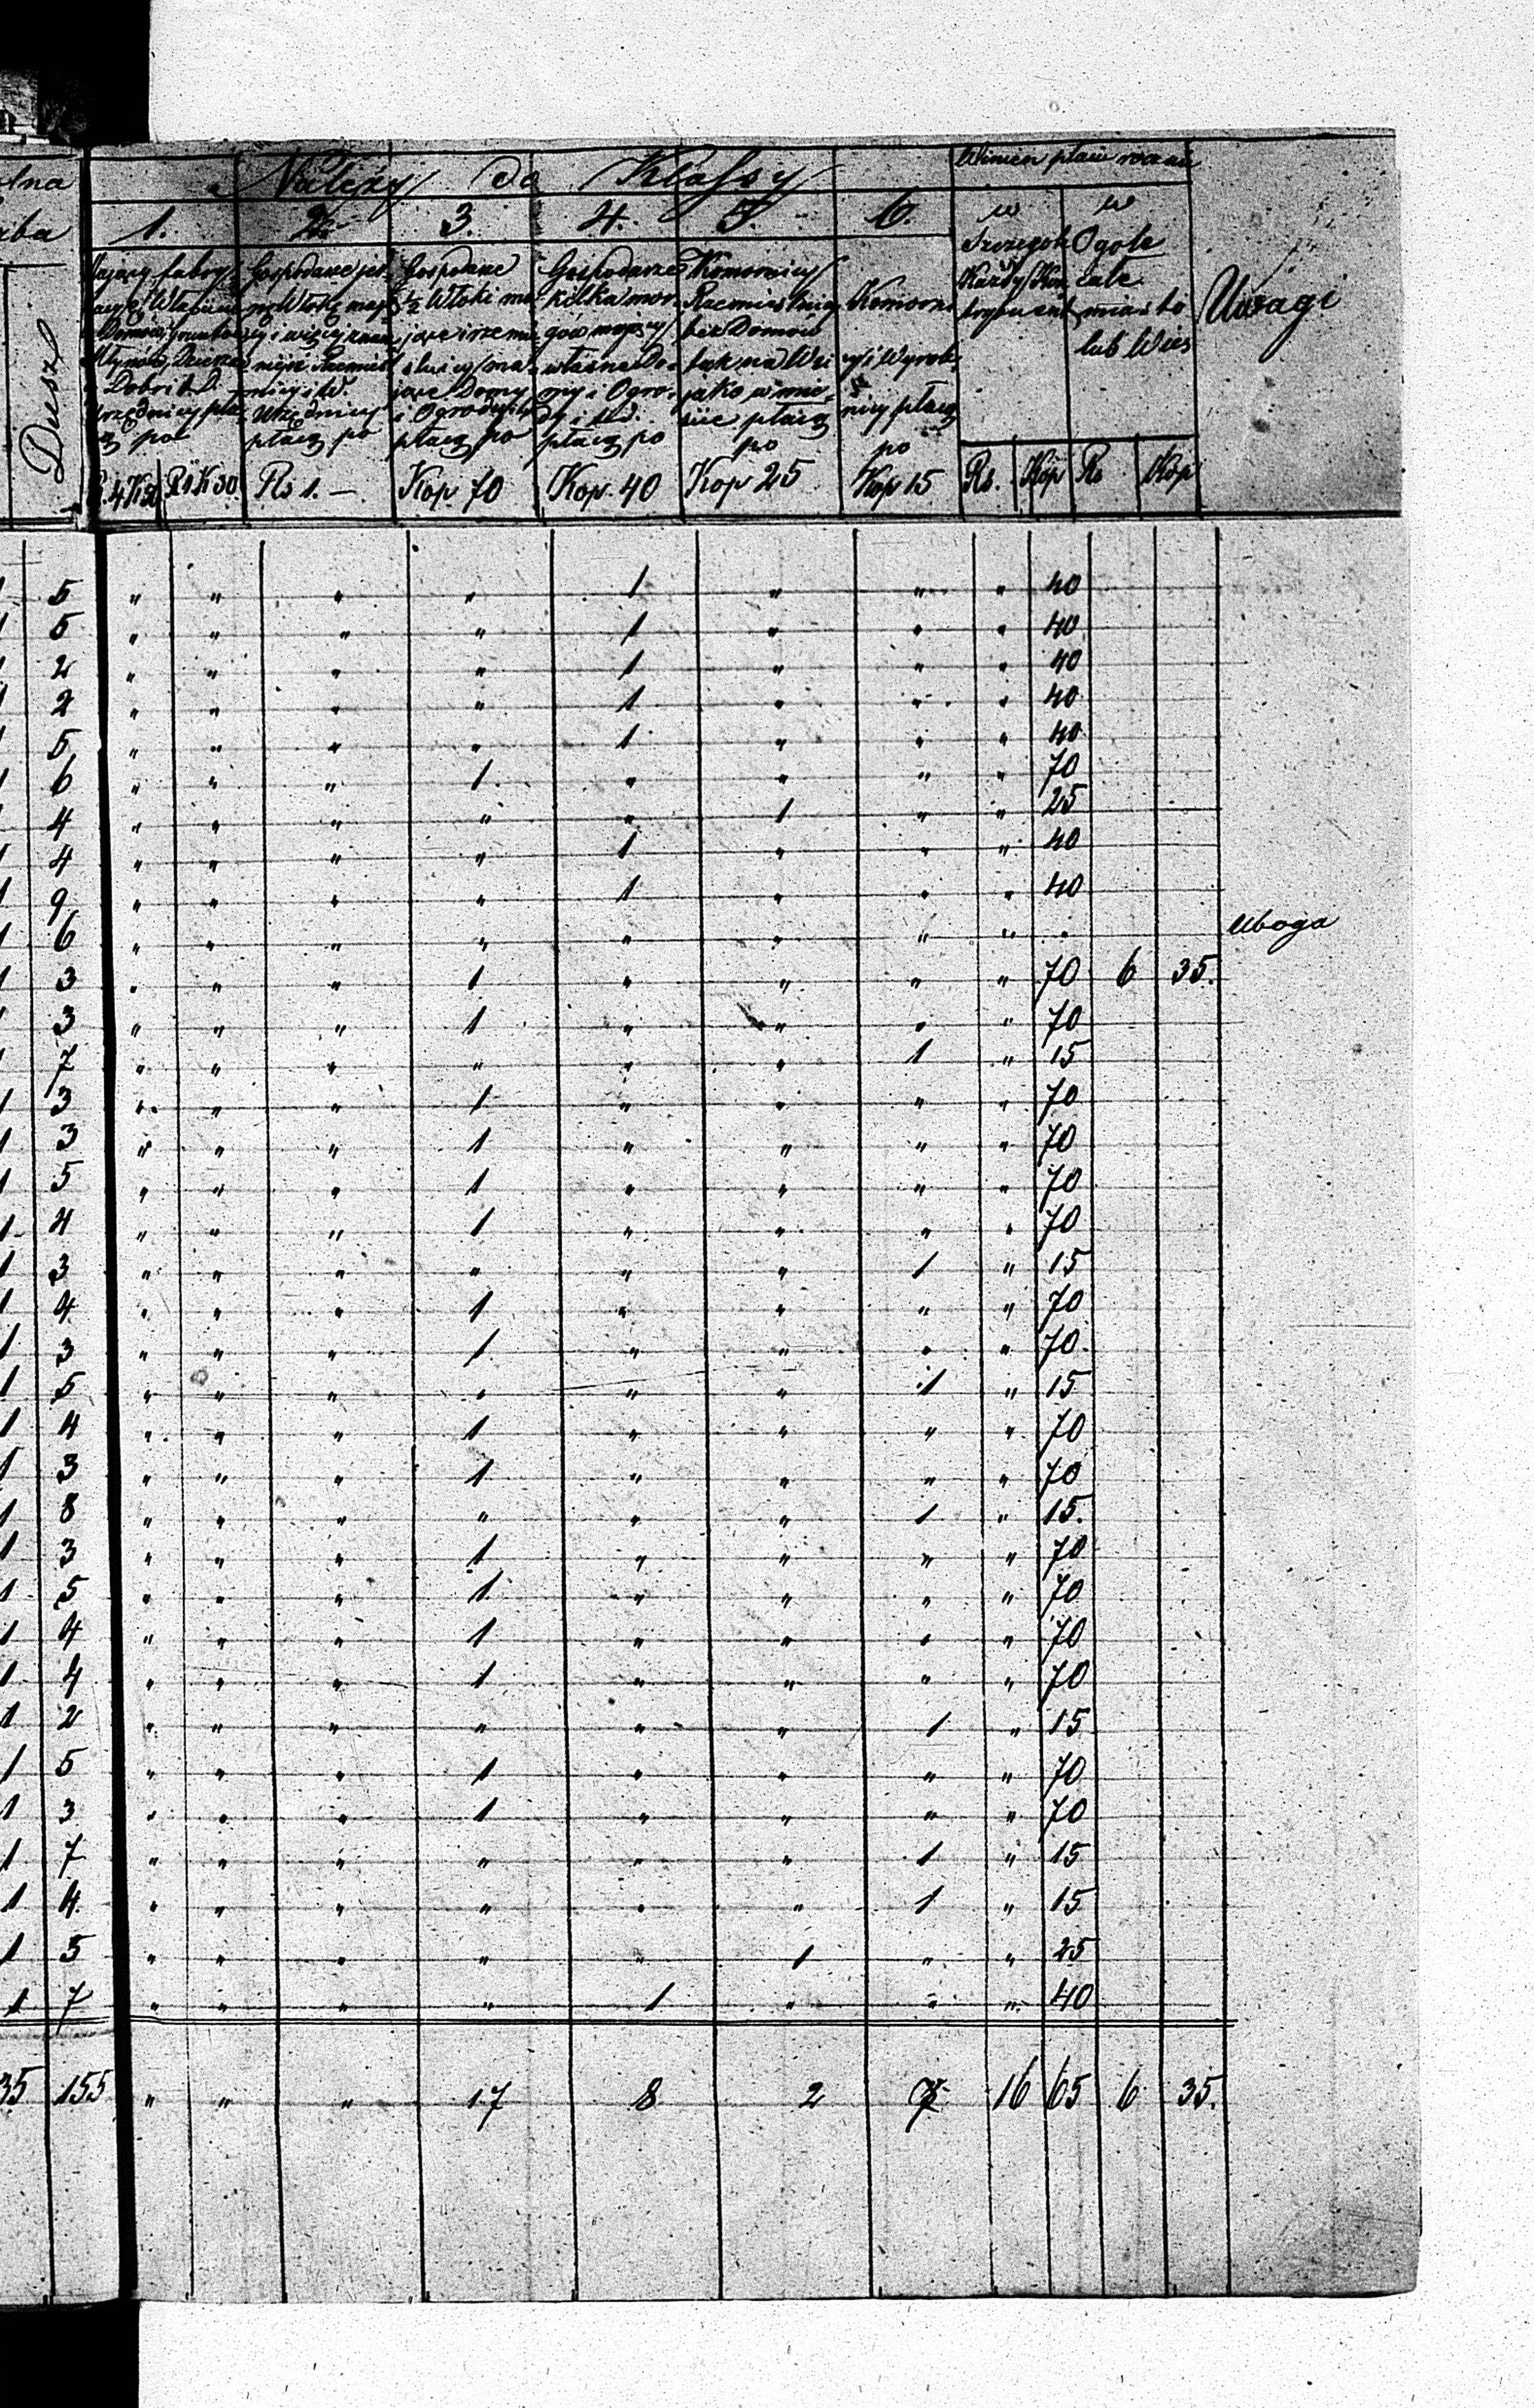 Należy do Klassy
Winien płacić rocznie
1. 2. 3. 4. 5. 6.
w Szczególe Każdy Kontrybuent
w Ogóle całe miasto lub Wieś
Uwagi
Dusz
Gospodarze
½ Włoki ma-
jące i rzemie-
ślnicy ma-
jące Domy
i Ogrody itd
płacą po
Gospodarze
kilka mor-
gów mający
własne Do-
my i Ogro-
dy i t.d.
płacą po
Komornicy
Rzemieślnicy
bez Domów
tak na Wsi
jako w mie-
ście płacą
po
Komorni-
cy i Wyrob-
nicy płacą
po
Rs 1. —
Kop 70
Kop. 40
Kop 25
Kop 15
Rs. Kop Rs Kop
1 5 " " " " 1 " " " 40
1 5 " " " " 1 " " " 40
1 2 " " " " 1 " " " 40
1 2 " " " " 1 " " " 40
1 5 " " " " 1 " " " 40
1 6 " " " 1 " " " " 70
4 " " " " " 1 " " 25
1 4 " " " " 1 " " " 40
1 9 " " " " 1 " " " 40
1 6 " " " " " " " " " Uboga
1 3 " " " 1 " " " " 70 6 35.
1 3 " " " 1 " " " " 70
7 " " " " " " 1 " 15
1 3 " " " 1 " " " " 70
1 3 " " " 1 " " " " 70
1 5 " " " 1 " " " " 70
1 4 " " " 1 " " " " 70
1 3 " " " " " " 1 " 15
1 4 " " " 1 " " " " 70
1 3 " " " 1 " " " " 70
1 5 " " " " " " 1 " 15
1 4 " " " 1 " " " " 70
1 3 " " " 1 " " " " 70
1 8 " " " " " " 1 " 15.
1 3 " " " 1 " " " " 70
1 5 " " " 1 " " " " 70
1 4 " " " 1 " " " " 70
1 4 " " " 1 " " " " 70
1 2 " " " " " " 1 " 15
1 5 " " " 1 " " " " 70
1 3 " " " 1 " " " " 70
1 7 " " " " " " 1 " 15
1 4 " " " " " " 1 " 15
1 5 " " " " " 1 " " 25
1 7 " " " " 1 " " " 40
35 155 " " " 17 8 2 7 16 65 6 35.